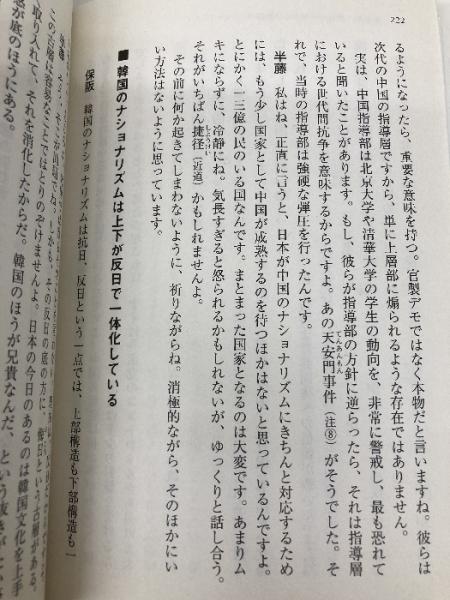 222
るようになったら、重要な意味を持つ。官製デモではなく本物だと言いますね。彼らは
次代の中国の指導層ですから、単に上層部に煽られるような存在ではありません。
実は、中国指導部は北京大学や清華大学の学生の動向を、非常に警戒し、最も恐れて
いると聞いたことがあります。もし、彼らが指導部の方針に逆らったら、それは指導層
における世代間抗争を意味するからですよ。あの天安門事件(注⑧)がそうでした。そ
れで、当時の指導部は強硬な弾圧を行ったんです。
半藤 私はね、正直に言うと、日本が中国のナショナリズムにきちんと対応するため
には、もう少し国家として中国が成熟するのを待つほかはないと思っているんですよ。
とにかく一三億の民のいる国なんです。まとまった国家となるのは大変です。あまりム
キにならずに、冷静にね。気長すぎると怒られるかもしれないが、ゆっくりと話し合う。
それがいちばん捷径(近道)かもしれませんよ。
その前に何か起きてしまわないように、祈りながらね。消極的ながら、そのほかにい
い方法はないように思っています。
■韓国のナショナリズムは上下が反日で一体化している
保阪 韓国のナショナリズムは抗日、反日という一点では、上部構造も下部構造も一
この古層は容易なことではとりのぞけませんよ。日本の今日のあるのは韓国文化を上手
に取り入れて、それを消化したからだ。韓国のほうが兄貴なんだ、という
が底のほうにある。